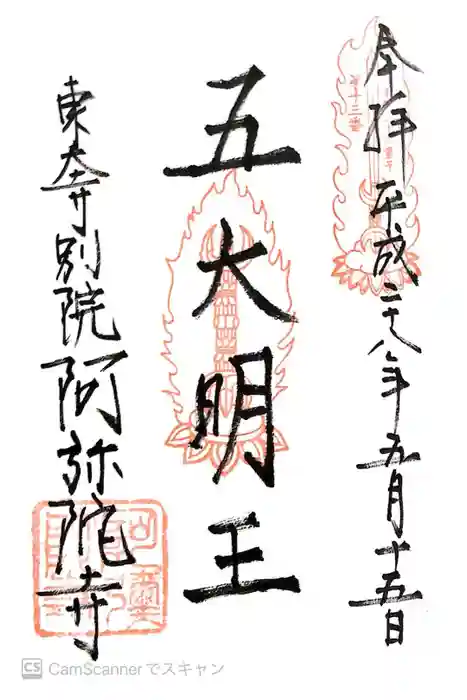 奉拝 平成二十八年五月十五日
五大明王
東大寺別院阿弥陀寺
CS CamScannerでスキャン